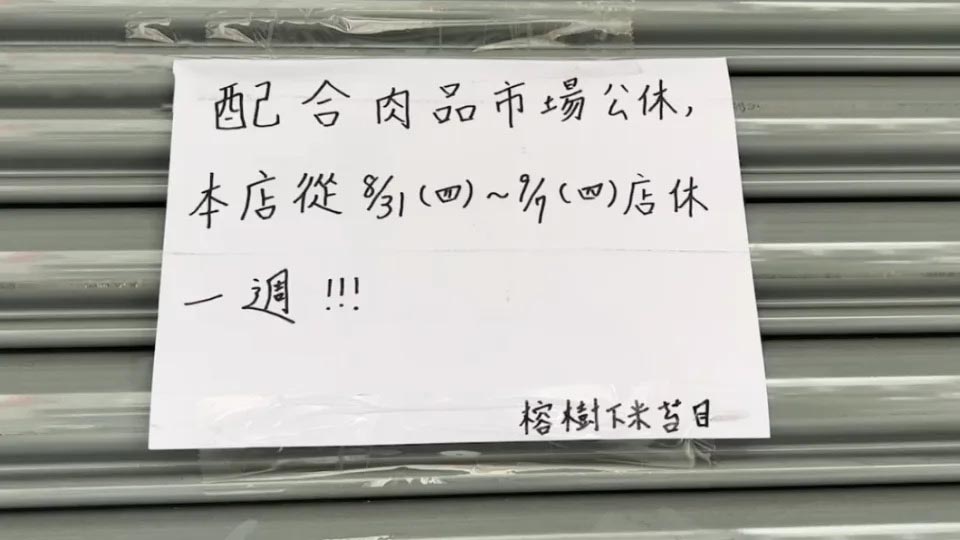 配合肉品市場公休,
本店從 8/31 (四) ~ 9/7 (四) 店休
一週 !!!
榕樹下米苔目